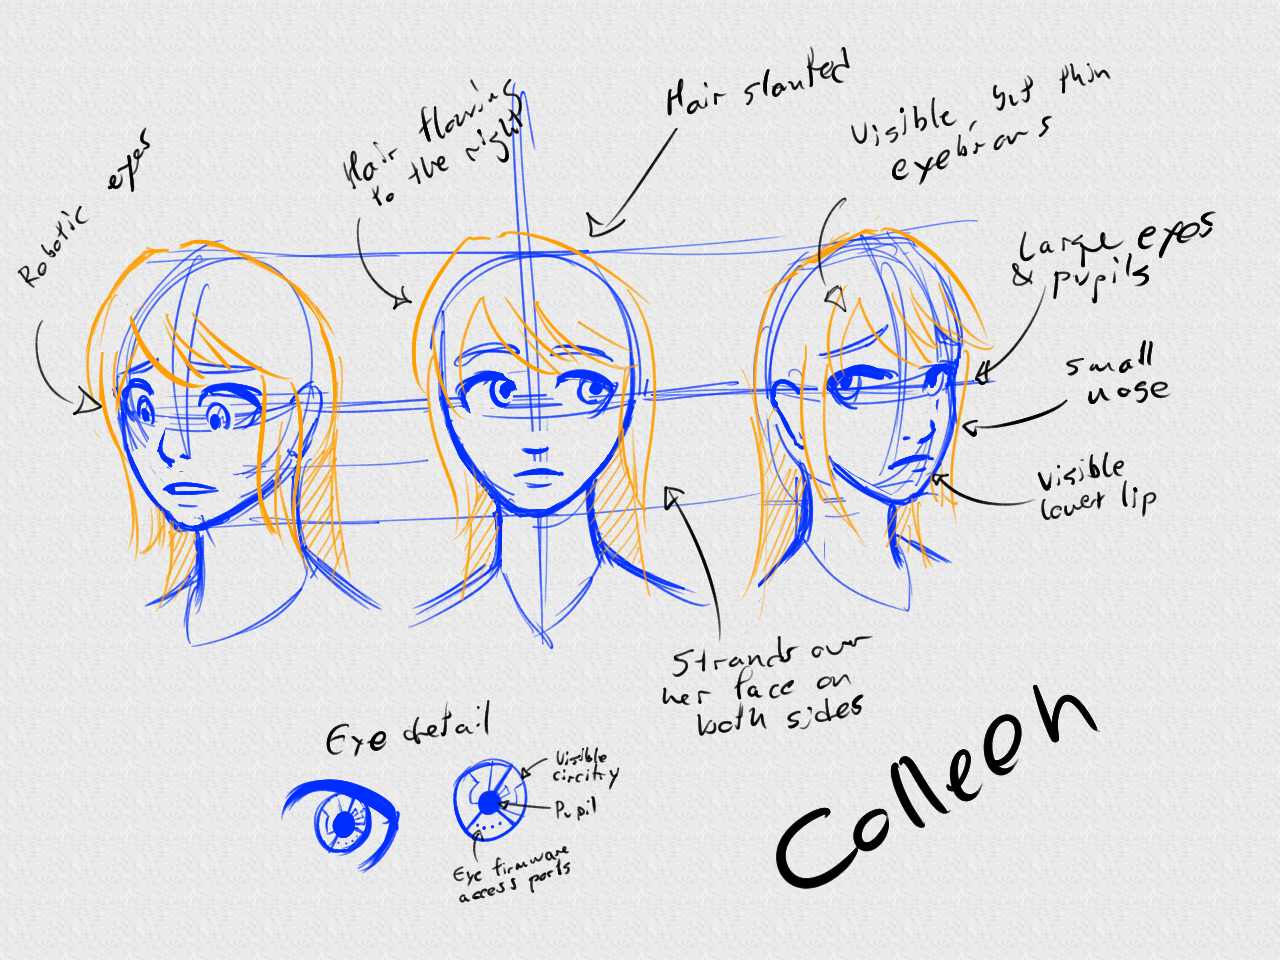 Robotic eyes
Hair flowing
to the right
Hair slanted
Visible, but thin
eyebrows
Large eyes
& pupils
Small
nose
Visible
lower lip
Strands over
her face on
both sides
Eye detail
Visible
circitry
Pupil
Eye firmware
access ports
Colleen